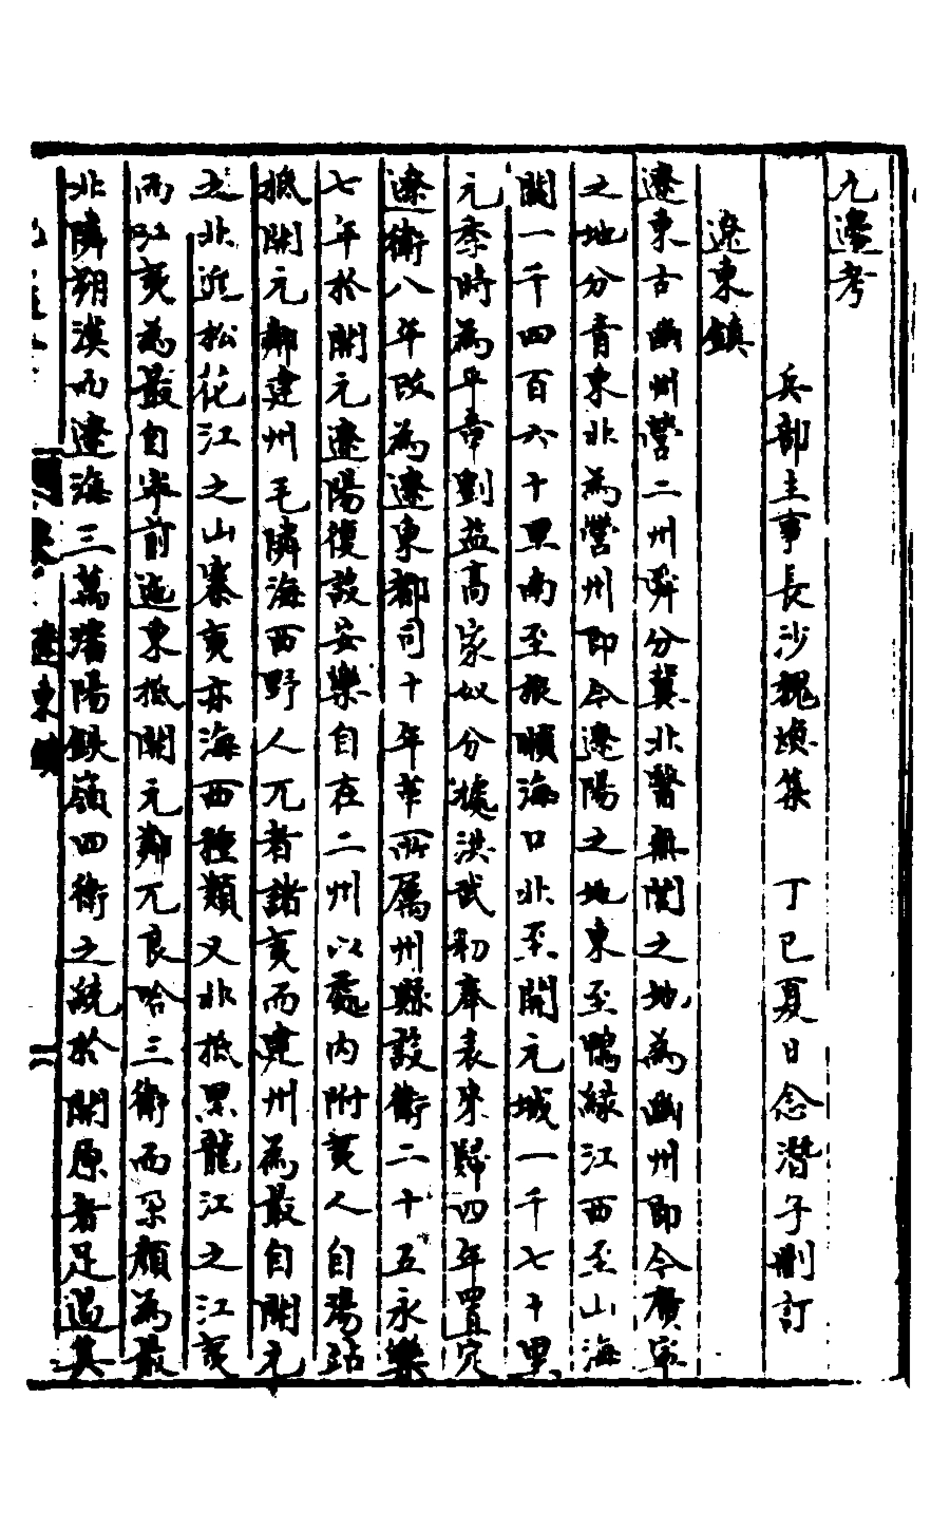 九邊考
兵部主事長沙魏煥集　丁巳夏日念潛子刪訂
遼東鎮
遼東古幽州營二州舜分冀北醫無閭之地為幽州即今廣寧
之地分青東北為營州即今遼陽之地東至鴨綠江西至山海
關一千四百六十里南至旅順海口北至開元城一千七十里
元季時為平章劉益高家奴分據洪武初奉表來歸四年置定
遼衛八年改為遼東都司十年革所屬州縣設衛二十五永樂
七年於開元遼陽復設安樂自在二州以處內附夷人自湯站
抵開元鄰建州毛隣海西野人兀者諸夷而建州為最自開元
之北近松花江之山寨夷亦海西種類又北抵黑龍江之江夷
而江夷為最自寧前迤東抵開元鄰兀良哈三衛而朵顏為最
北隣朔漠而遼海三萬瀋陽鉄嶺四衛之統於開原者足遏其
遼東鎮
二